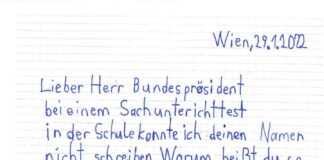 Wien, 29.1.2022
Lieber Herr Bundespräsident
bei einem Sachunterichttest
in der Schule konnte ich deinen Namen
nicht schreiben Warum heißt du so